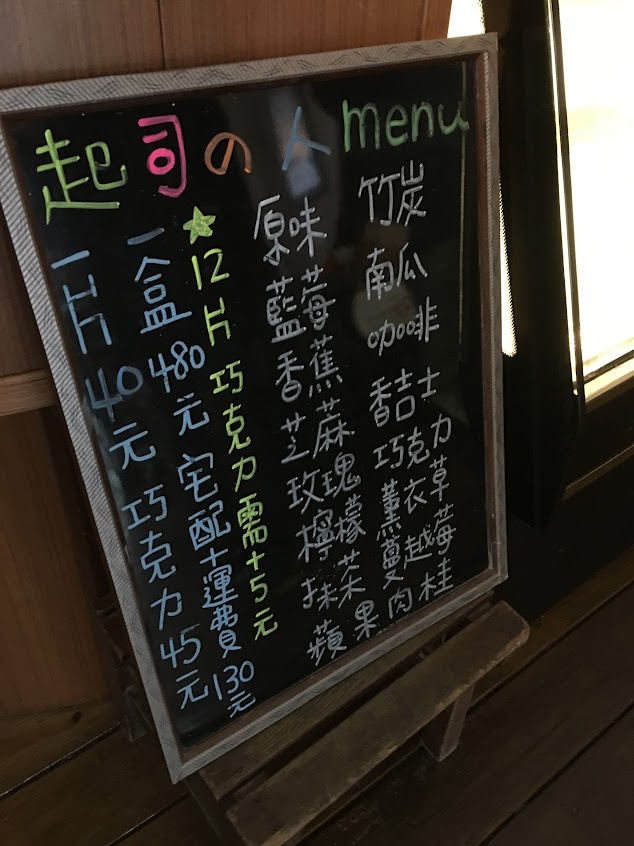 起司の人 menu
一片40元 巧克力45元
一盒480元 宅配+運費130元
★12片巧克力需+5元
原味
藍莓
香蕉
芝麻
玫瑰
檸檬
抹茶
蘋果
竹炭
南瓜
咖啡
香吉士
巧克力
薰衣草
蔓越莓
肉桂